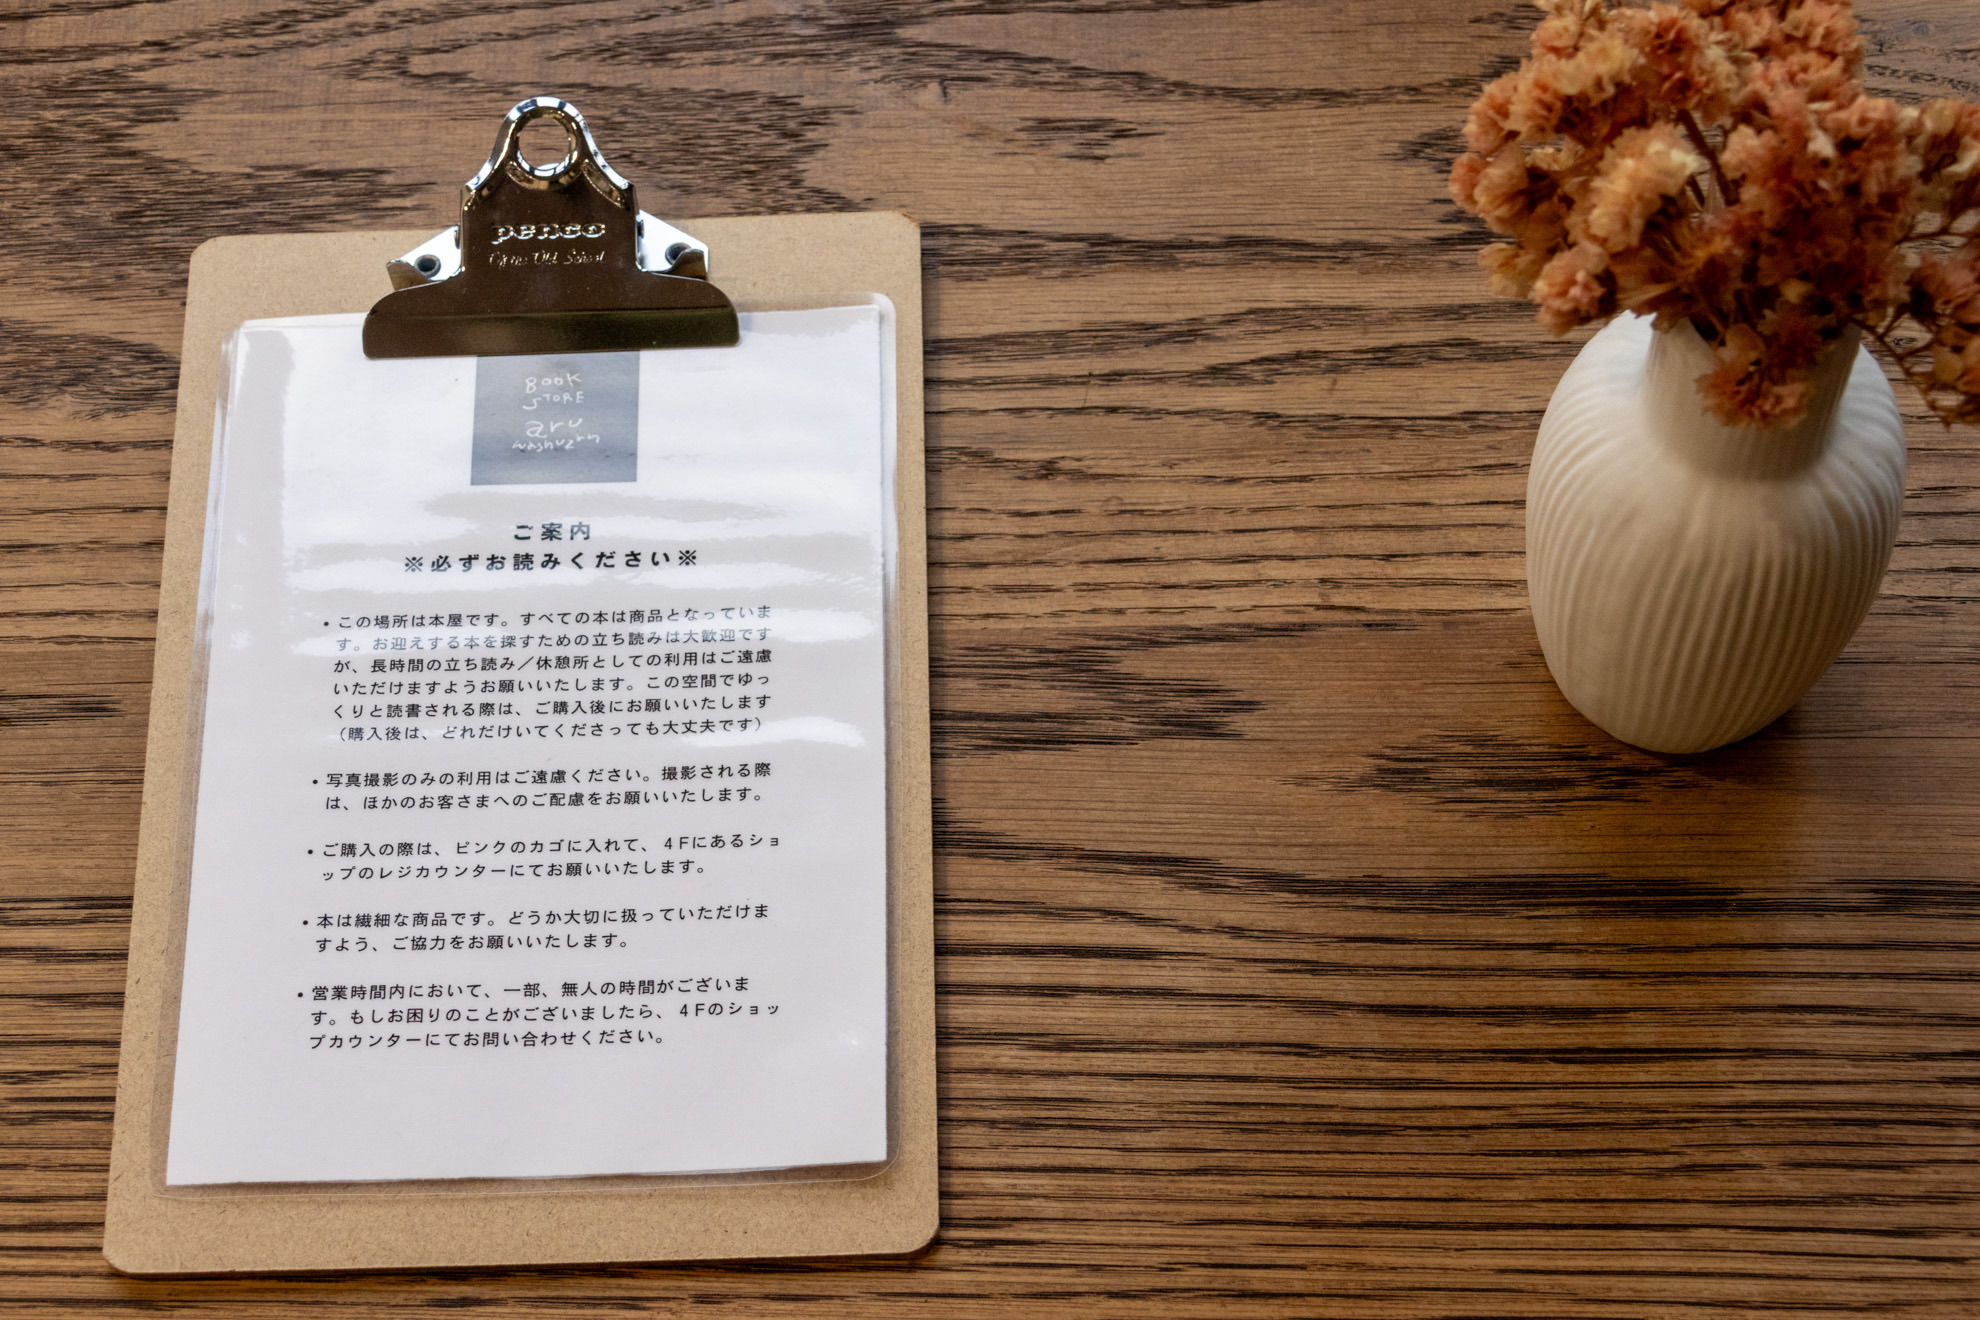 penco
BOOK
STORE
aru
ご案内
※必ずお読みください※
・この場所は本屋です。すべての本は商品となっていま
す。お迎えする本を探すための立ち読みは大歓迎です
が、長時間の立ち読み／休憩所としての利用はご遠慮
いただけますようお願いいたします。この空間でゆっ
くりと読書される際は、ご購入後にお願いいたします
（購入後は、どれだけいてくださっても大丈夫です）
・写真撮影のみの利用はご遠慮ください。撮影される際
は、ほかのお客さまへのご配慮をお願いいたします。
・ご購入の際は、ピンクのカゴに入れて、４Fにあるショ
ップのレジカウンターにてお願いいたします。
・本は繊細な商品です。どうか大切に扱っていただけま
すよう、ご協力をお願いいたします。
・営業時間内において、一部、無人の時間がございま
す。もしお困りのことがございましたら、４Fのショッ
プカウンターにてお問い合わせください。